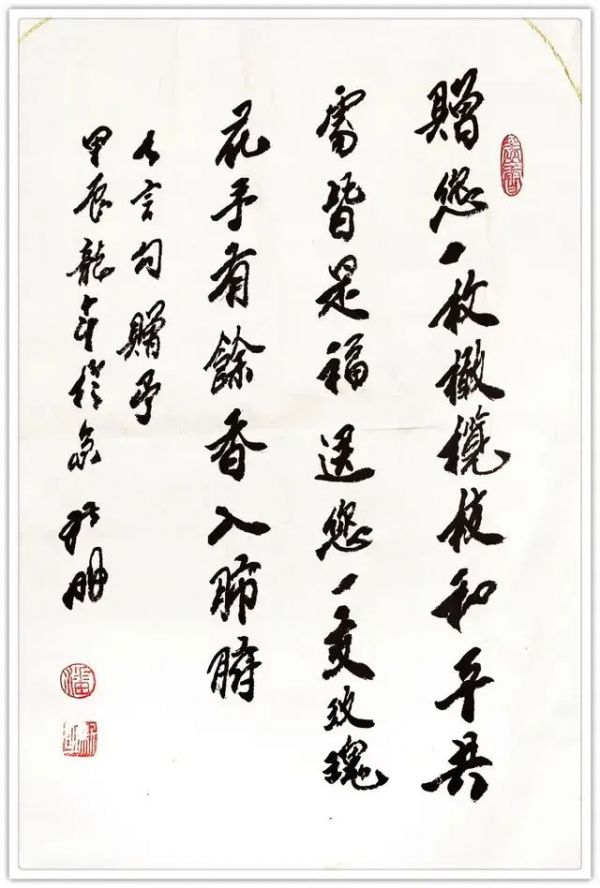 贈您一枚橄欖枝和平共
需皆是福送您一支玫瑰
花手有餘香入肺腑
言句贈予
甲辰龍年於京
潘